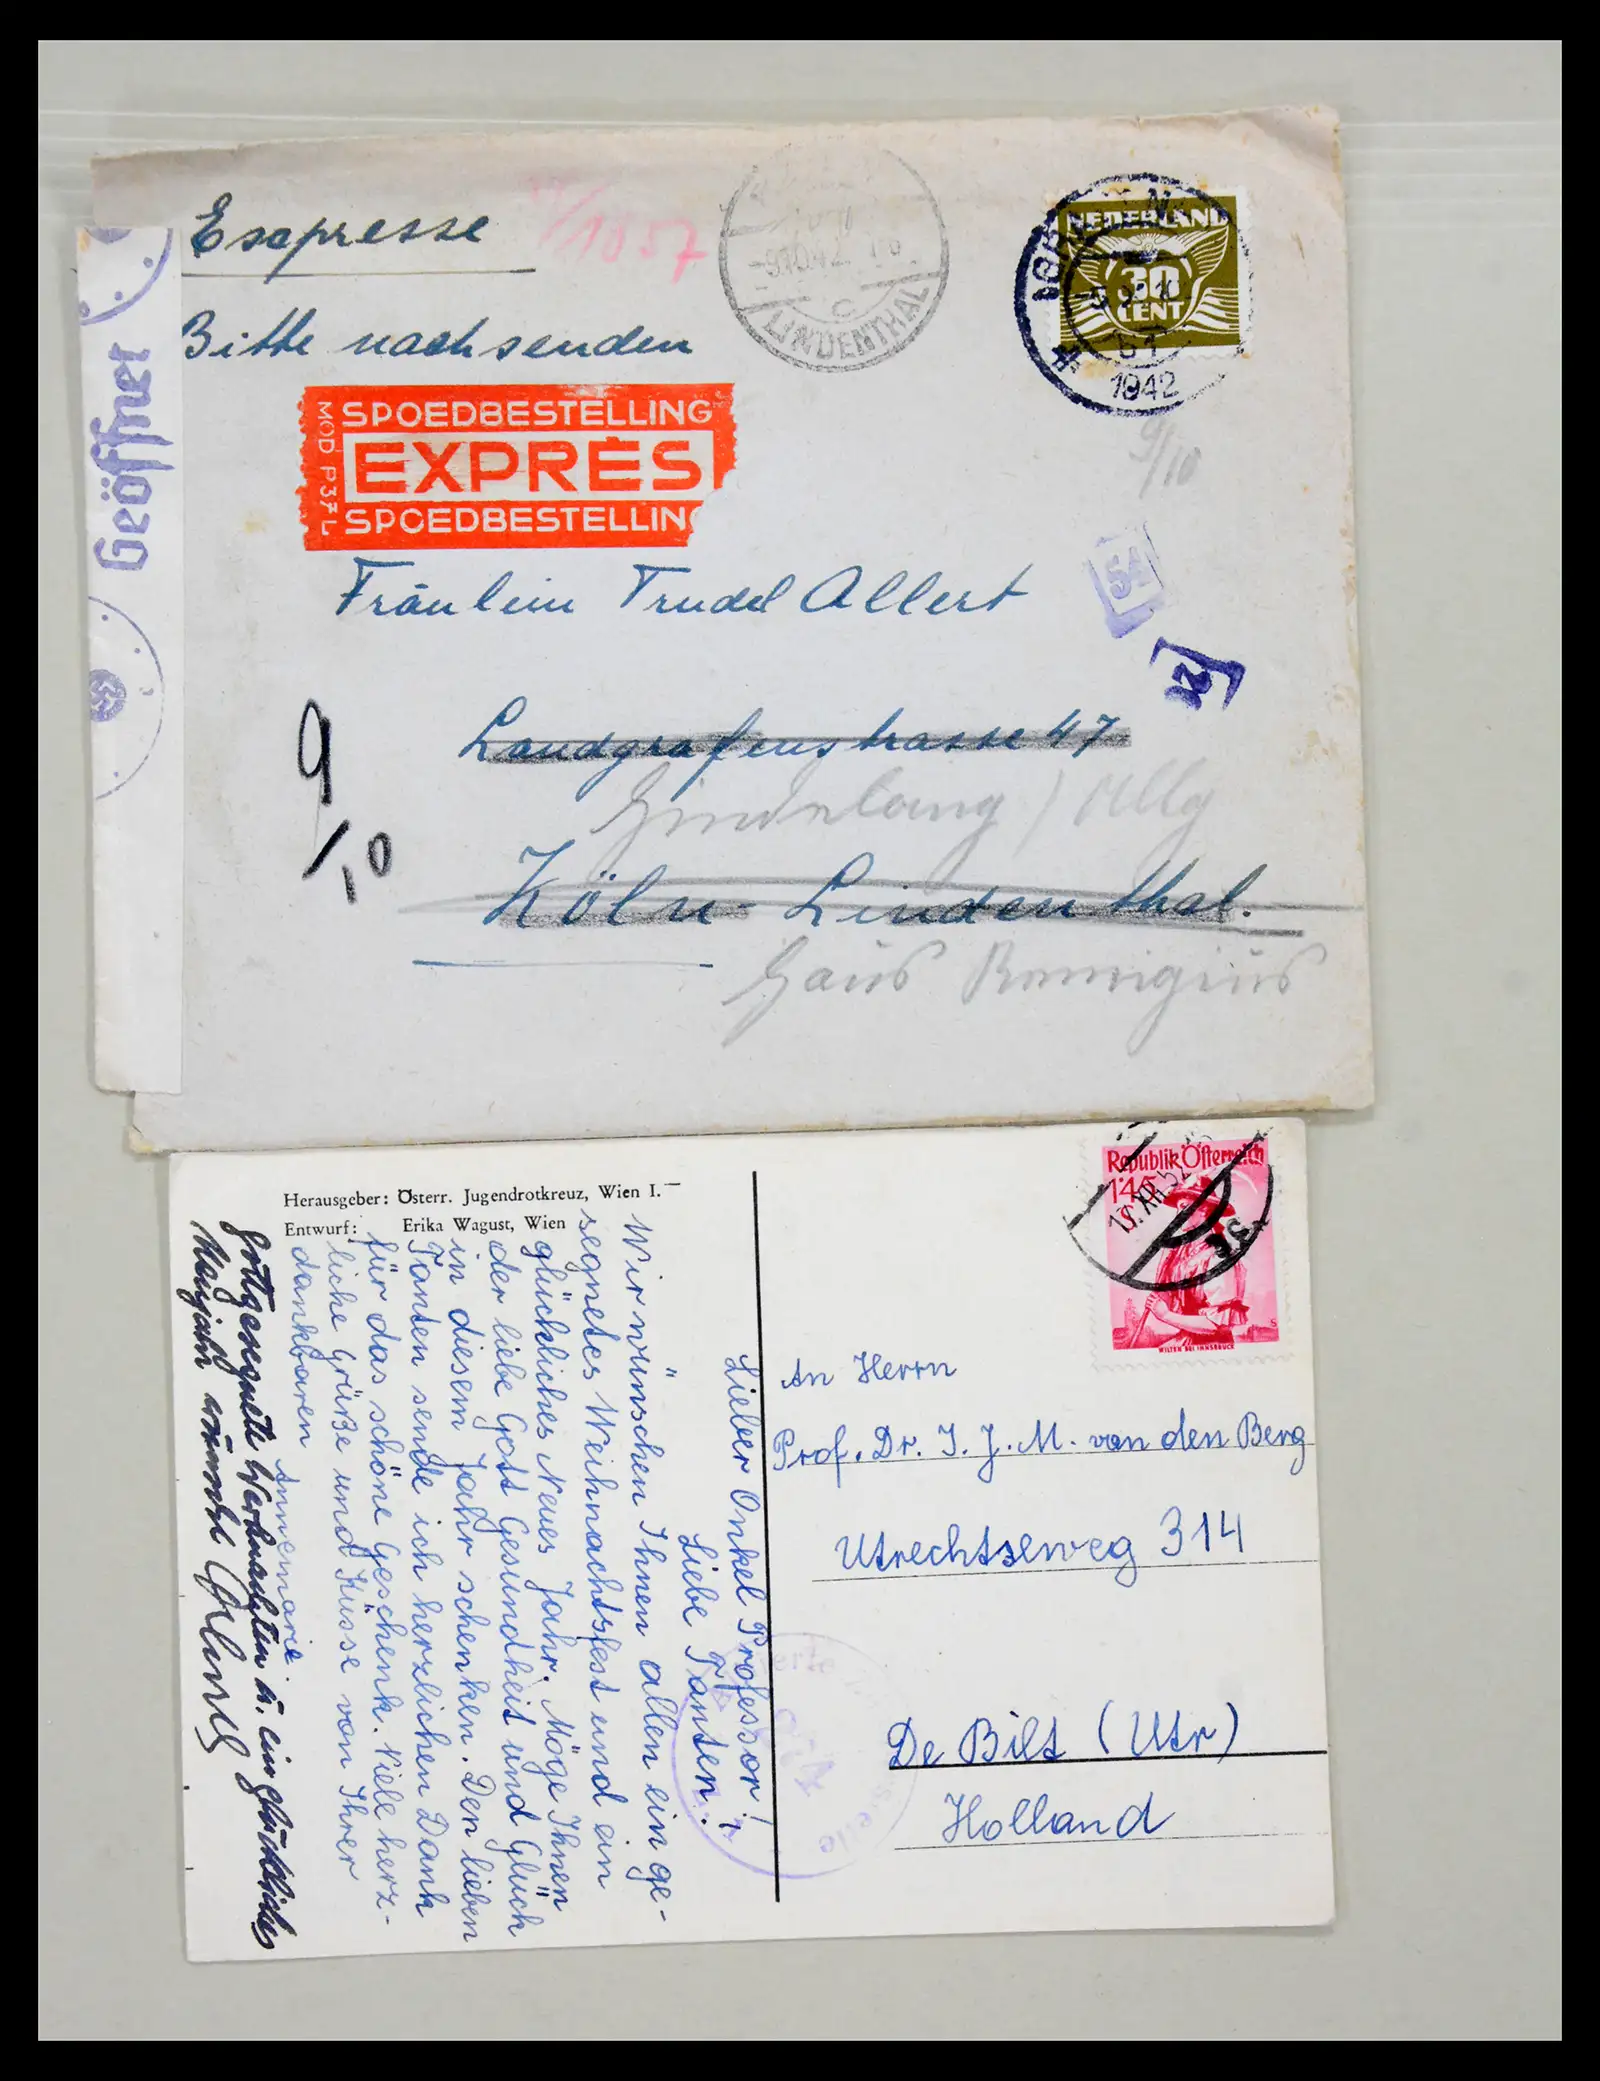 Esxpresse
Bitte nachsenden
Geöffnet
LINDENTHAL
c
NEDERLAND
30
CENT
1942
9/10
MOD P37 L
SPOEDBESTELLING
EXPRÈS
SPOEDBESTELLING
54
Fräulein Trudel Allert
Landgrafenstrasse 47
9/10
Köln-Lindenthal.
Haus Remigius
Herausgeber: Österr. Jugendrotkreuz, Wien I.
Entwurf: Erika Wagust, Wien
Republik Österreich
WILTEN BEI INNSBRUCK
Lieber Onkel Professor!
Liebe Tanten!
Wir wünschen Ihnen allen ein ge-
segnetes Weihnachtsfest und ein
glückliches Neues Jahr. Möge Ihnen
der liebe Gott Gesundheit und Glück
in diesem Jahr schenken. Den lieben
Tanten sende ich herzlichen Dank
für das schöne Geschenk. Viele herz-
liche Grüße und Küsse von Ihrer
dankbaren Annemarie.
Gottgesegnete Weihnachten u. ein glückliches
Neujahr wünscht
An Herrn
Prof. Dr. I. J. M. van den Berg
Utrechtseweg 314
De Bilt (Utr)
Holland